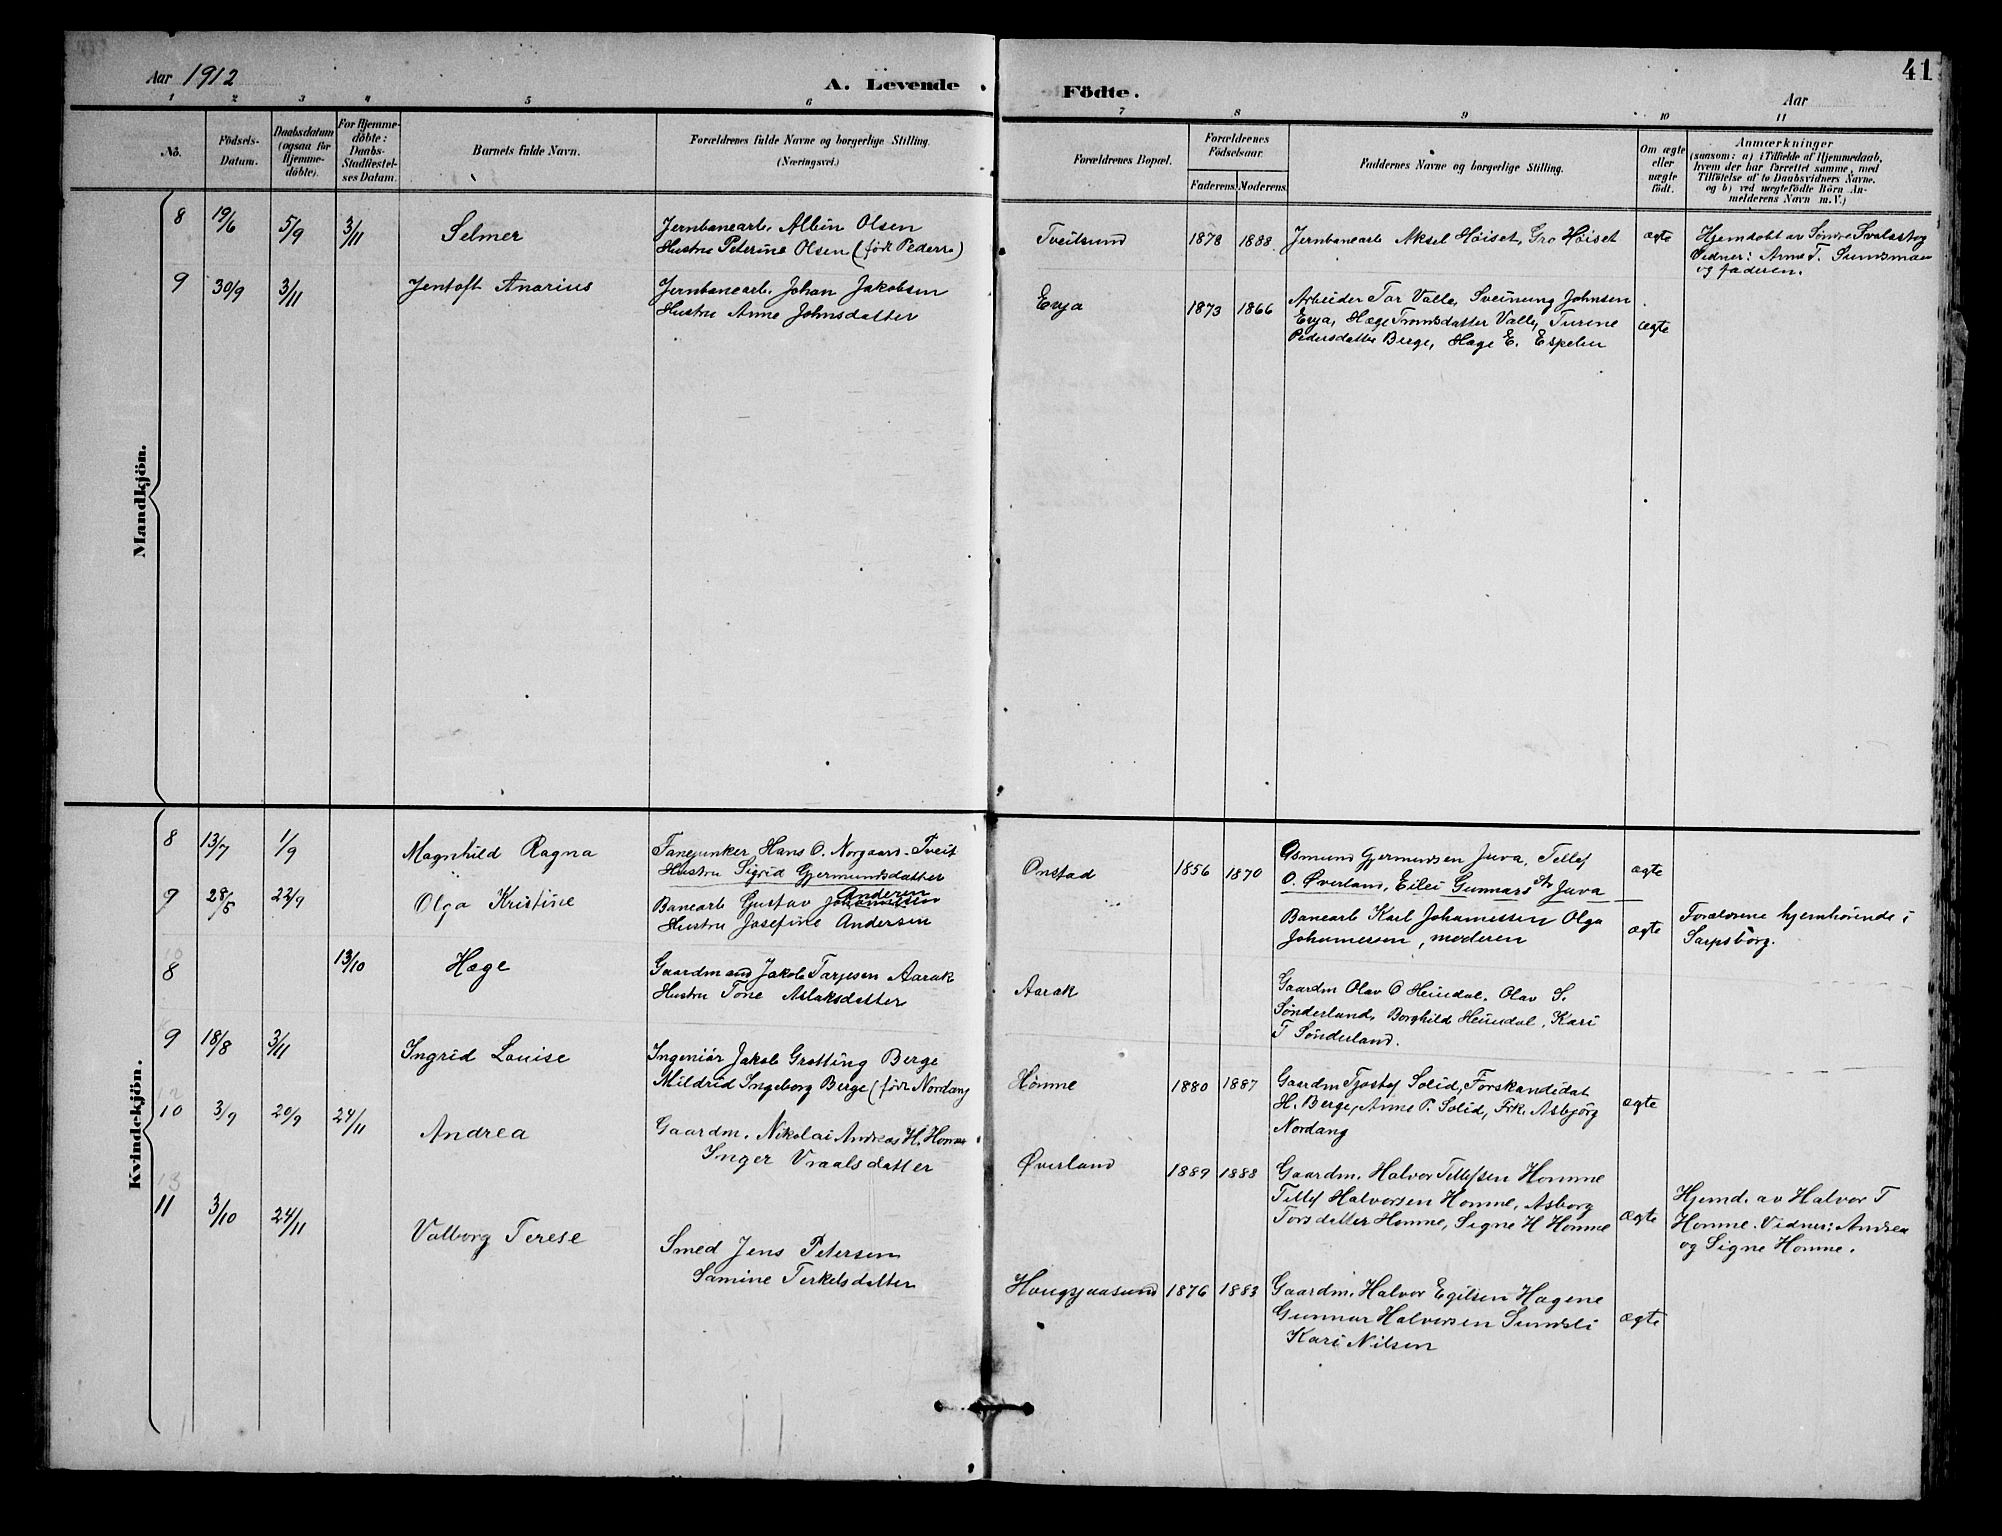 Aar 1912
A. Levende
Födte.
41
Aar
1 2 3 4 5 6 7 8 9 10 11
Nô.
Födsels-
Datum.
Daabsdatum
(ogsaa for
Hjemme-
döbte).
For Hjemme-
döbte:
Daabs-
Stadfæstel-
ses Datum.
Barnets fulde Navn.
Forældrenes fulde Navne og borgerlige Stilling.
(Næringsvei.)
Forældrenes Bopæl.
Forældrenes
Födselsaar.
Faderens. Moderens.
Faddernes Navne og borgerlige Stilling.
Om ægte
eller
uægte
födt.
Anmærkninger
(saasom: a) i Tilfælde af Hjemmedaab,
hvem der har forrettet samme, med
Tilföielse af to Daabsvidners Navne.
og b) ved uægtefödte Börn An-
melderens Navn m. V.)
Mandkjön.
8 19/6 5/9 3/11 Selmer
Jernbanearb. Albin Olsen
Hustru Peterine Olsen (født Pederre)
Tveitsund 1878 1888
Jernbanearb Aksel Höiset, Gro Höiset
ægte
Hjemdøbt av Søndre Svalastog
Vidner: Anne T. Sundsmoen
og faderen.
9 30/9 3/11 Jentoft Anarius
Jernbanearb. Johan Jakobsen
Hustru Anne Johnsdatter
Evja 1873 1866
Arbeider Tor Valle, Sveinung Johnsen
Evja, Hæge Tromsdatter Valle, Turene
Pedersdatter Berge, Hage E. Espelien
ægte
Kvindekjön.
8 13/7 1/9 Magnhild Ragna
Fanejunker Hans O. Norgaard-Tveit
Hustru Sigrid Gjermundsdatter
Onstad 1856 1870
Asmund Gjermundsen Juva, Tellef
O. Øverland, Eilei Gunnarsdtr Juva
ægte
9 28/5 22/9 Olga Kristine
Anderen
Banearb Gustav Johannesen
Hustru Josefine Andersen
Banearb Karl Johannessen Olga
Johannessen, moderen
ægte
Forældrene hjemhørende i
Sarpsborg.
10
8 13/10 Hæge
Gaardmand Jakob Tarjesen Aarak
Hustru Tone Aslaksdatter
Aarak
Gaardm Olav O Heimdal, Olav S.
Sønderland, Borghild Heimdal, Kari
T Sønderland.
9 18/8 3/11 Ingrid Louise
Ingeniør Jakob Grotting Berge
Mildrid Ingeborg Berge (født Nordang
Homme 1880 1887
Gaardm Tjostof Solid, Forskandidat
H. Berge, Anne P. Solid, Frk. Asbjørg
Nordang
ægte
12
10 3/9 20/9 24/11 Andrea
Gaardm. Nikolai Andreas H. Homme
Inger Vraalsdatter
Øverland 1889 1888
Gaardm. Halvor Tellefsen Homme
Tellef Halvorsen Homme, Asborg
Torsdatter Homme, Signe H Homme
ægte
Hjemd. av Halvor T
Homme. Vidner: Andrea
og Signe Homme.
13
11 3/10 24/11 Valborg Terese
Smed Jens Petersen
Samine Terkelsdatter
Haugsjaasund 1876 1883
Gaardm. Halvor Egilsen Hagene
Gunnar Halvorsen Sundsli
Kari Nilsen
ægte